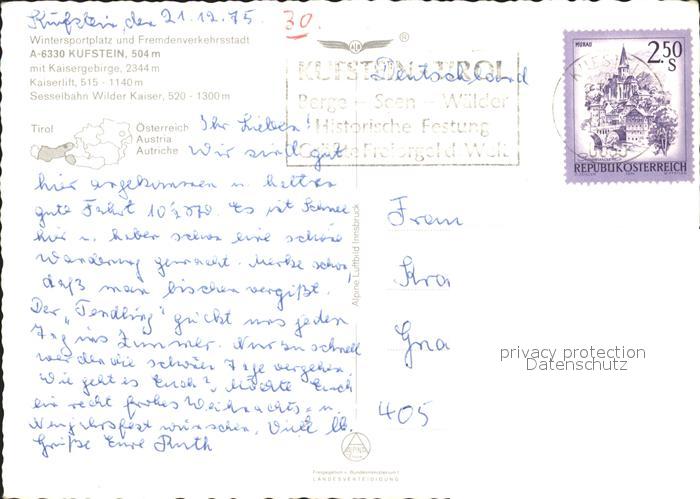 Kufstein, den 21.12.75.
30.
Wintersportplatz und Fremdenverkehrsstadt
A-6330 KUFSTEIN, 504 m
mit Kaisergebirge, 2344 m
Kaiserlift, 515 - 1140 m
Sesselbahn Wilder Kaiser, 520 - 1300 m
Tirol
Österreich
Austria
Autriche
Ihr Lieben!
Wir sind gut
hier angekommen u. hatten
gute Fahrt Es ist Schnee
hier u. haben schon eine schöne
Wanderung gemacht. Merke schon,
daß man bischen vergißt.
Der "Pendling" guckt uns jeden
Tag ins Zimmer. Nur zu schnell
werden die schönen Tage vergehen.
Wie geht es Euch? Möchte Euch
ein recht frohes Weihnachts- u.
Neujahrsfest wünschen. Viele lb.
Grüße Eure Ruth
Alpine Luftbild Innsbruck
Freigegeben v. Bundesministerium f.
LANDESVERTEIDIGUNG
KUFSTEIN-TIROL
Berge - Seen - Wälder
Historische Festung
Deutschland
MURAU
2.50
S
REPUBLIK ÖSTERREICH
Frau
Kra
Gna
405
privacy protection
Datenschutz